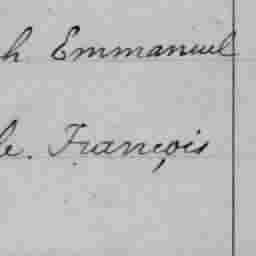 h Emmanuel
le. François